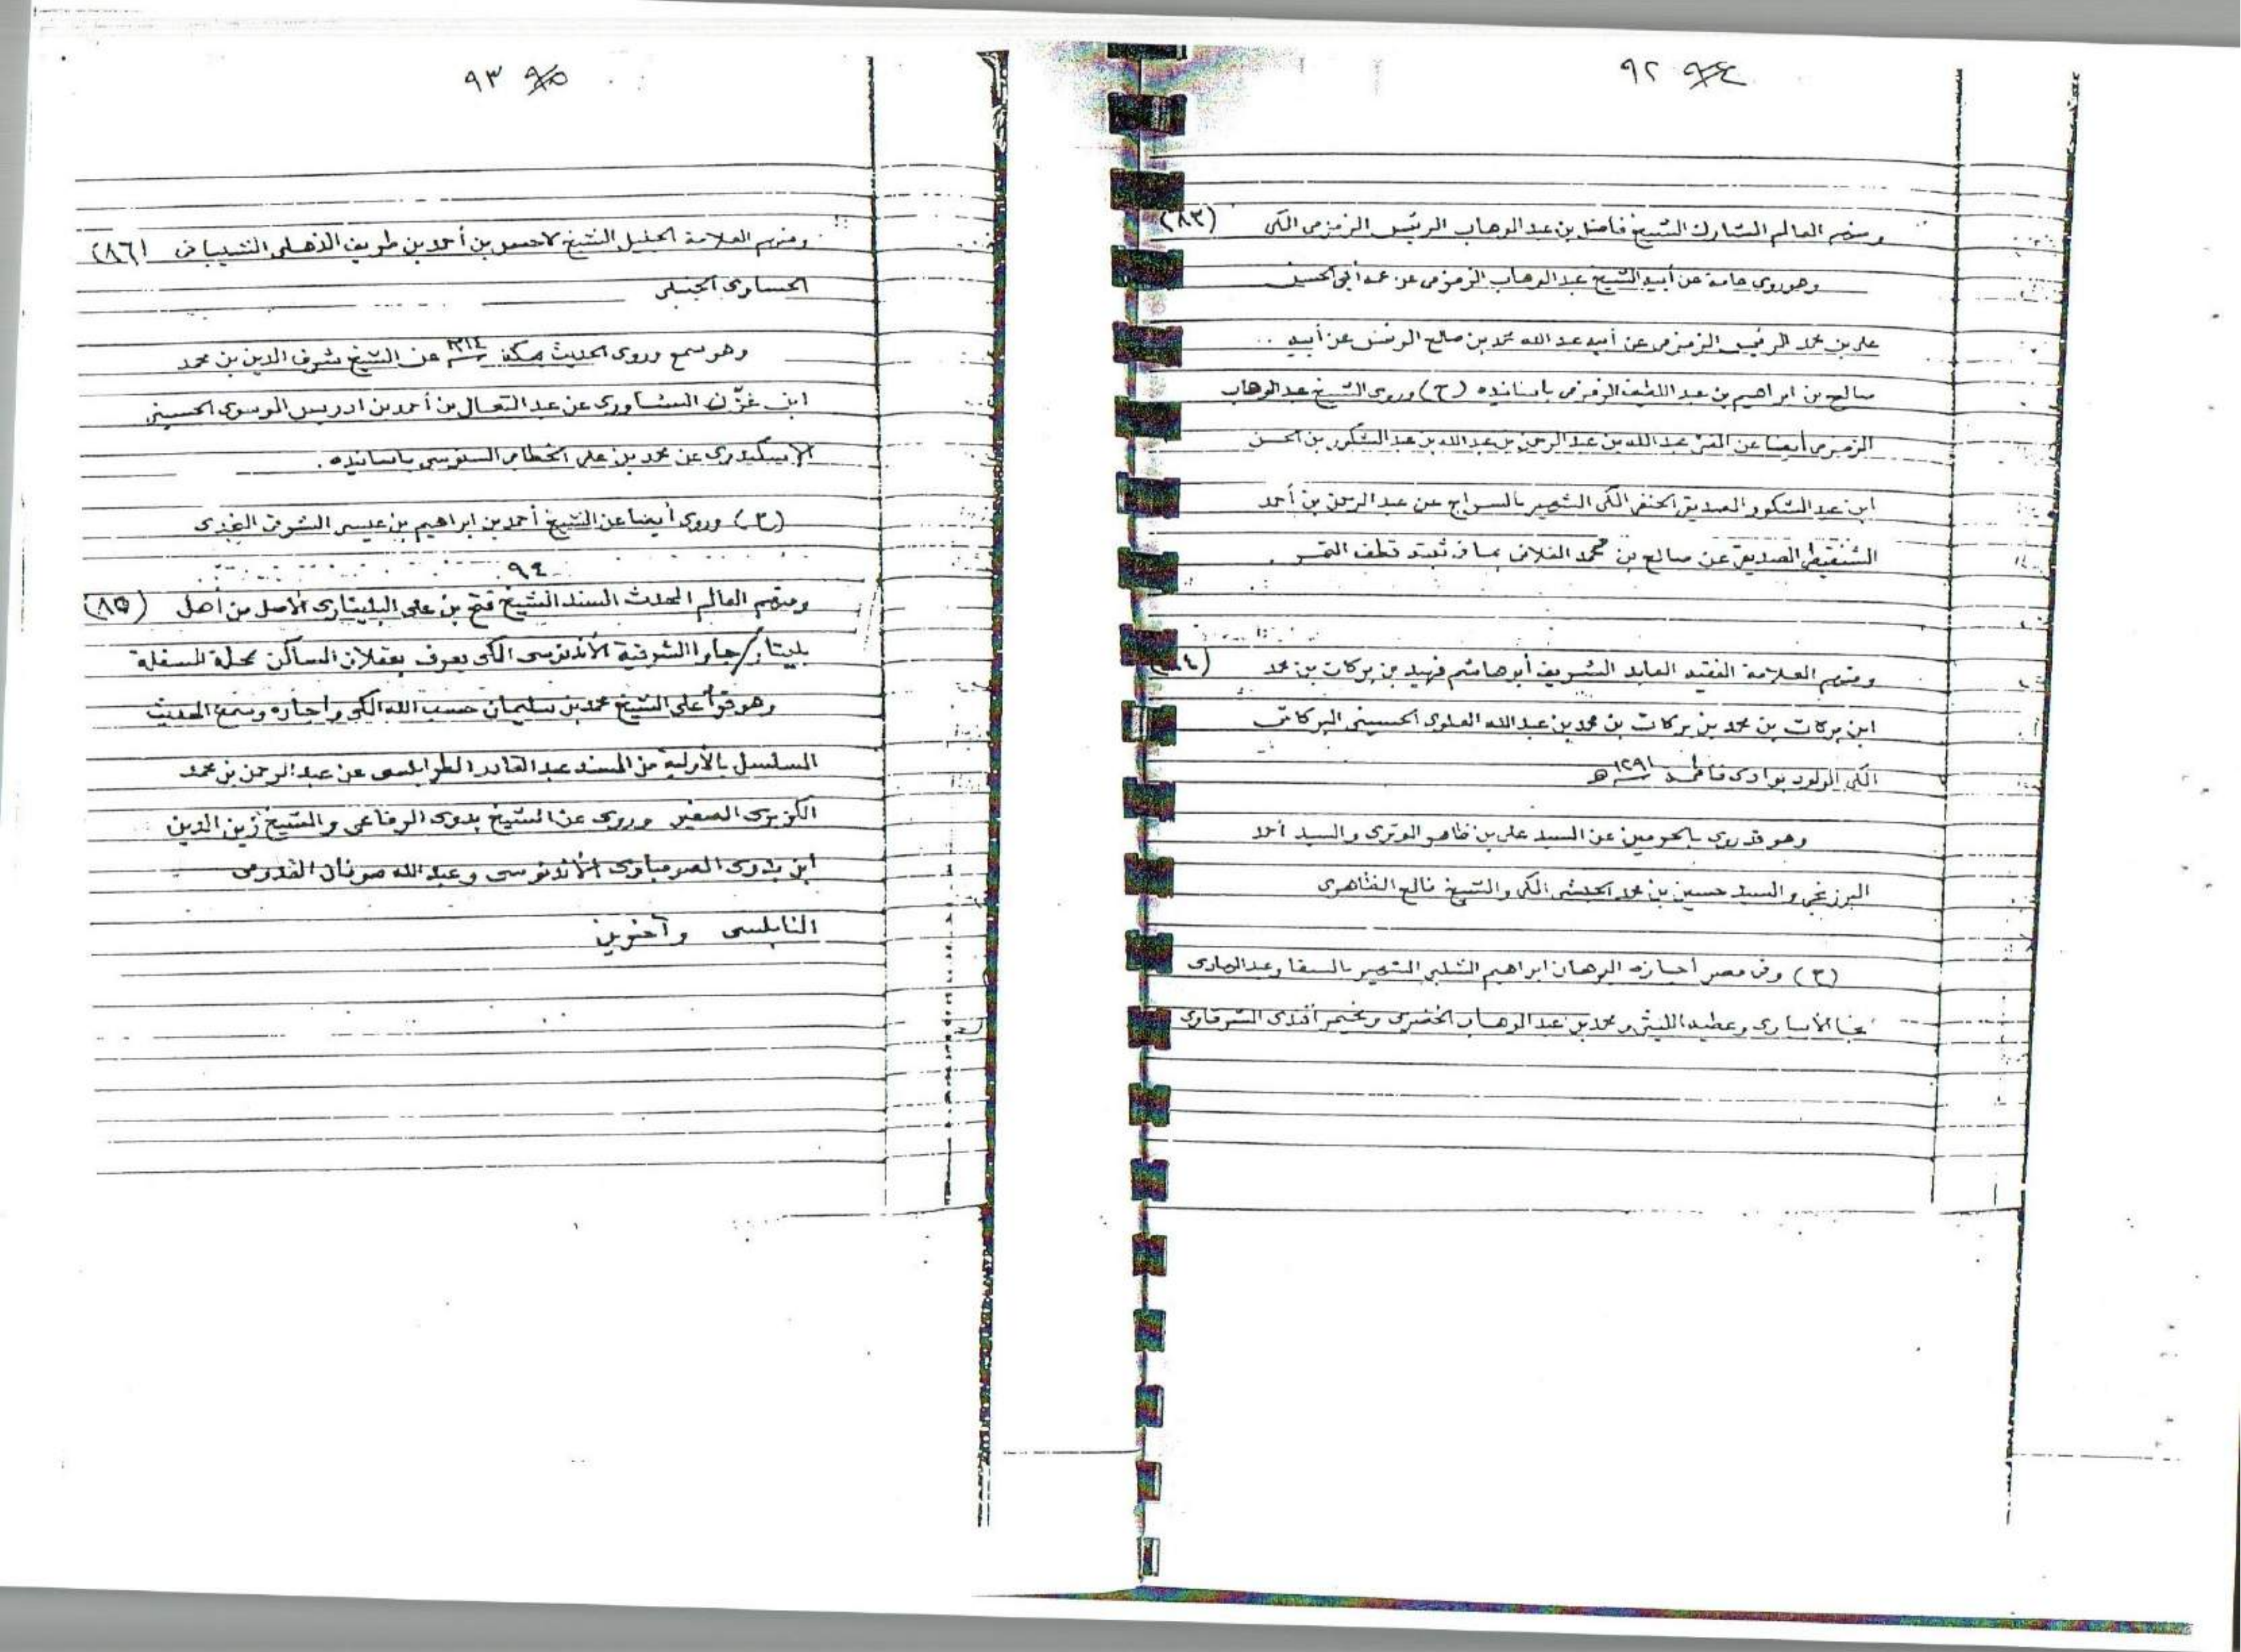 ٩٢ ٩٤
ومنهم العالم المشارك الشيخ فاضل بن عبد الوهاب الريس الزمزمى المكى (٨٣)
وهو روى عامة عن أبيه الشيخ عبد الوهاب الزمزمى عن عمه أبى الحسن
على بن محمد الريس الزمزمى عن أبيه عبد الله محمد بن صالح الريس عن أبيه
صالح بن ابراهيم بن عبد اللطيف الزمزمى بأسانيده (ح) وروى الشيخ عبد الوهاب
الزمزمى أيضا عن عبد الله بن عبد الرحمن بن عبد الله بن عبد الشكور بن الحسن
ابن عبد الشكور الصديقى الحنفى المكى الشهير بالسراج عن عبد الرحمن بن أحمد
الشنقيطى الصديقى عن صالح بن محمد الفلانى بما فى ثبته قطف الثمر .
ومنهم العلامة الفقيه العابد الشريف أبو هاشم فهيد بن بركات بن محمد (٨٤)
ابن بركات بن محمد بن بركات بن محمد بن عبد الله العلوى الحسينى البركاتى
المكى المولود بوادى فاطمة ١٢٩١ هـ
وهو قد روى بالحرمين عن السيد على بن ظاهر الوترى والسيد أحمد
البرزنجى والسيد حسين بن محمد الحبشى المكى والشيخ فالح الظاهرى
(ح) وفى مصر أجازه البرهان ابراهيم الشلبى الشهير بالسقا وعبد الهادى
نجا الأبيارى وعطيه الليثى ومحمد بن عبد الوهاب الخضرى وأفندى الشرقاوى
٩٣ ٩٥
ومنهم العلامة الجليل الشيخ لاحسو بن أحمد بن طريف الذهلى الشيبانى (٨٦)
الحساوى الحنبلى
وهو سمع وروى الحديث بمكة عن الشيخ شرف الدين بن محمد
ابن عبد المتعال بن أحمد بن ادريس الموسوى الحسينى
الاسكندرى عن محمد بن على الخطابى السنوسى بأسانيده .
(ح) وروى أيضا عن الشيخ أحمد بن ابراهيم بن عيسى الشرقى النجدى
٩٤
ومنهم العالم المحدث المسند الشيخ فتح بن على البليتارى الأصل من أهل (٨٥)
بليتار/جاوا الشرقية الأندنوسى المكى يعرف بعقلان الساكن محلة المسفلة
وهو قرأ على الشيخ محمد بن سليمان حسب الله المكى وأجازه وسمع الحديث
المسلسل بالأولية من المسند عبد القادر الطرابلسى عن عبد الرحمن بن محمد
الكزبرى الصغير وروى عن الشيخ بدوى الرفاعى والشيخ زين الدين
ابن بدوى الصومباوى الأندنوسى وعبد الله صوفان القدومى
النابلسى وآخرين